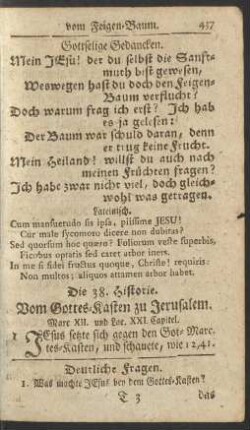 vom Feigen-Baum. 437
Gottselige Gedancken.
Mein JEsu! der du selbst die Sanft-
muth bist gewesen,
Weswegen hast du doch den Feigen-
Baum verflucht?
Doch warum frag ich erst? Jch hab
es ja gelesen:
Der Baum war schuld daran, denn
er trug keine Frucht.
Mein Heiland! willst du auch nach
meinen Früchten fragen?
Jch habe zwar nicht viel, doch gleich-
wohl was getragen.
Lateinisch.
Cum mansuetudo sis ipsa, piissime JESU!
Cur male sycomoro dicere non dubitas?
Sed quorsum hoc quæro? Foliorum veste superbis,
Ficubus optatis sed caret arbor iners.
In me si fidei fructus quoque, Christe! requiris:
Non multos; aliquos attamen arbor habet.
Die 38. Historie.
Vom Gottes-Kasten zu Jerusalem.
Marc XII. und Luc. XXI. Capitel.
1 JEsus setzte sich gegen den Got- Marc.
tes-Kasten, und schauete, wie 12,41.
Deutliche Fragen.
1. Was machte JEsus bey dem Gottes-Kasten?
T 3 das